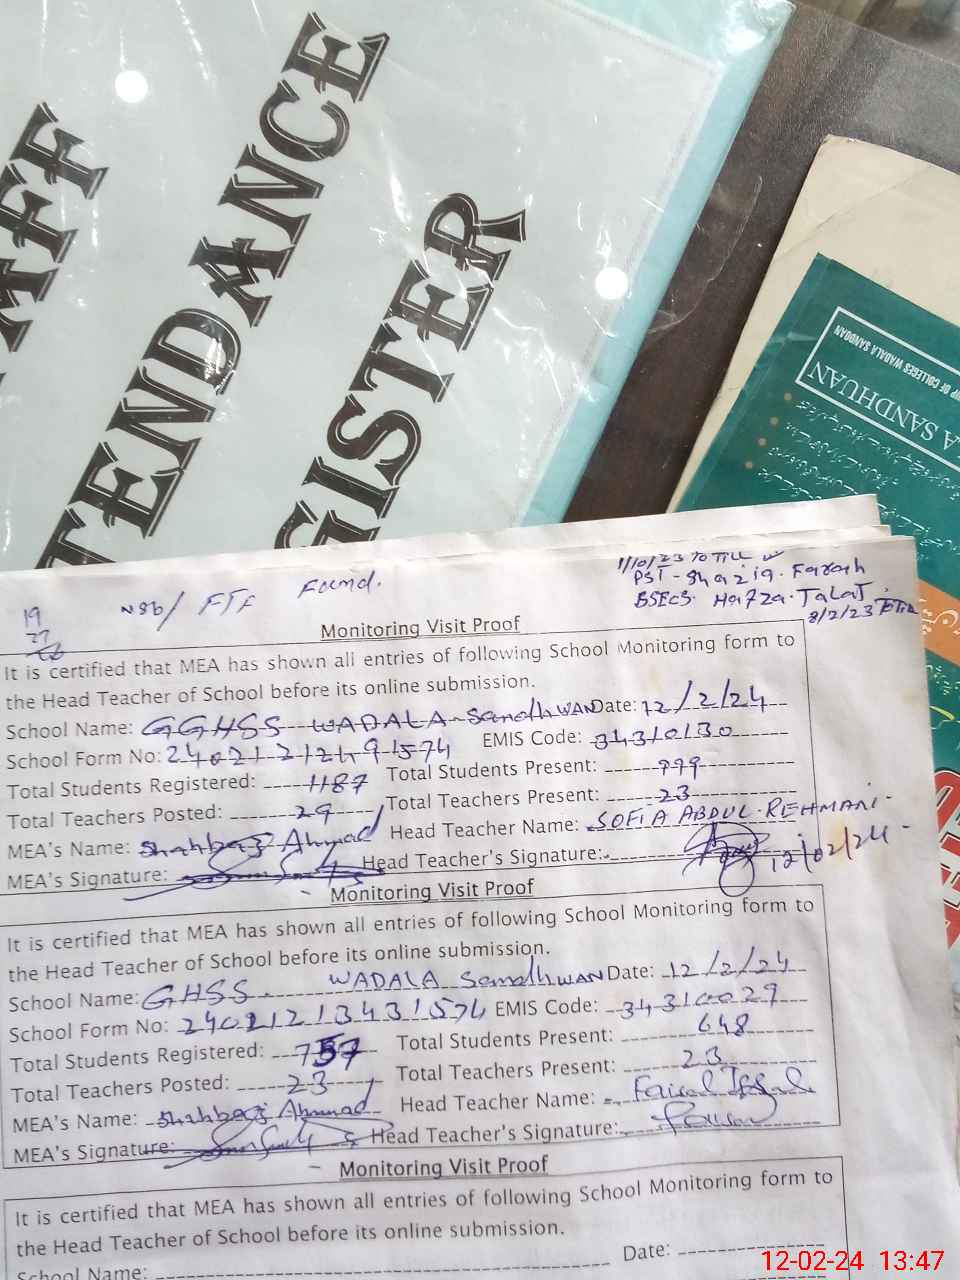 STAFF
ATTENDANCE
REGISTER
UP OF COLLEGES WADALA SANDOAN
A SANDHUAN
1/10/23 To TILL
PST - Shazia. Farah
BSECS. Hafza. TaLaT
8/2/23 To TILL
19
27
NSb/ FTF Found.
Monitoring Visit Proof
It is certified that MEA has shown all entries of following School Monitoring form to
the Head Teacher of School before its online submission.
School Name: GGHSS WADALA SandhWAN Date: 12/2/24
School Form No: 24021212491574 EMIS Code: 34310130
Total Students Registered: 1187 Total Students Present: 999
Total Teachers Posted: 29 Total Teachers Present: 23
MEA's Name: Shahbaz Ahmad Head Teacher Name: SOFIA ABDUL REHMANI
MEA's Signature: Head Teacher's Signature: 12/02/24
Monitoring Visit Proof
It is certified that MEA has shown all entries of following School Monitoring form to
the Head Teacher of School before its online submission.
School Name: GHSS. WADALA SandhWAN Date: 12/2/24
School Form No: 24021213431574 EMIS Code: 34310029
Total Students Registered: 757 Total Students Present: 648
Total Teachers Posted: 23 Total Teachers Present: 23
MEA's Name: Shahbaz Ahmad Head Teacher Name: Faisal
MEA's Signature: Head Teacher's Signature:
Monitoring Visit Proof
It is certified that MEA has shown all entries of following School Monitoring form to
the Head Teacher of School before its online submission.
School Name: Date:
12-02-24 13:47